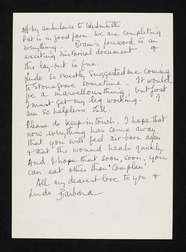 off by ambulance to Wedmore.
Pat is in good form. We are completing
everything. Draws forward to an
exciting historical document &
the lay out is fun.
Ludo so sweetly suggested me coming
to Stonegrove sometime. It would
be a marvellous thing, but first
I must get my leg working. I
am so helpless still.
Please do keep in touch. I hope that
now everything has come away
that you will feel air-born again
& that the wound heals quickly,
And I hope that soon, soon, you
can eat other than 'Complan'
All my dearest love to you &
Ludo Barbara